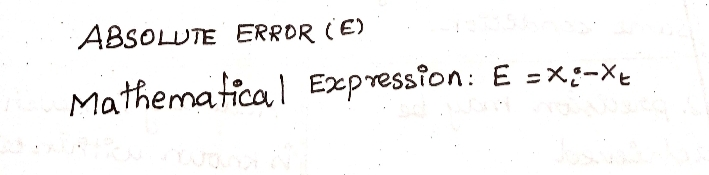 ABSOLUTE ERROR (E)
Mathematical Expression: E = xᵢ-xₜ